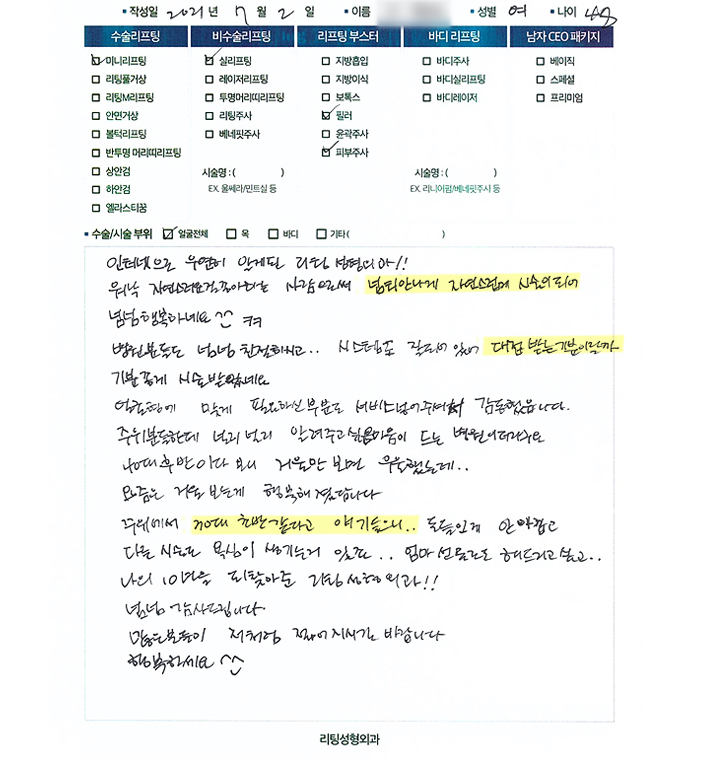 ▪ 작성일 2021년 7월 2일 ▪ 이름 ▪ 성별 여 ▪ 나이 48
수술리프팅 비수술리프팅 리프팅 부스터 바디 리프팅 남자 CEO 패키지
미니리프팅 실리프팅 지방흡입 바디주사 베이직
리팅풀거상 레이저리프팅 지방이식 바디실리프팅 스페셜
리팅M리프팅 투명머리띠리프팅 보톡스 바디레이저 프리미엄
안면거상 리팅주사 필러
볼턱리프팅 베네핏주사 윤곽주사
반투명 머리띠리프팅 피부주사
상안검 시술명 : ( ) 시술명 : ( )
하안검 EX. 울쎄라/민트실 등 EX. 리니어펌/베네핏주사 등
엘라스티꿈
▪ 수술/시술 부위 얼굴전체 목 바디 기타 ( )
인터넷으로 우연히 알게된 리팅성형외과!!
워낙 자연스러운걸 좋아하는 사람으로써 넘티안나게 자연스럽게 시술이되어
넘넘행복하네요 ^^ ㅋㅋ
병원분들도 넘넘 친절하시고.. 시스템도 잘되어 있어 대접 받는 기분이랄까
기분좋게 시술받았네요
얼굴형에 맞게 필요하신부분도 서비스넣어주셔서 감동했습니다.
주위분들한테 널리 널리 알려주고싶은마음이 드는 병원이더라구요
40대 후반이다 보니 거울만 보면 우울했는데..
요즘은 거울 보는게 행복해졌답니다
주위에서 30대 초반같다고 얘기들으니.. 돈들인게 안아깝고
다른 시술도 욕심이 생기는거 있죠.. 엄마 선물로도 해드리고싶고..
나의 10년을 되찾아준 리팅성형외과!!
넘넘 감사드립니다
많은분들이 저처럼 젊어지시길 바랍니다
행복하세요 ^^
리팅성형외과